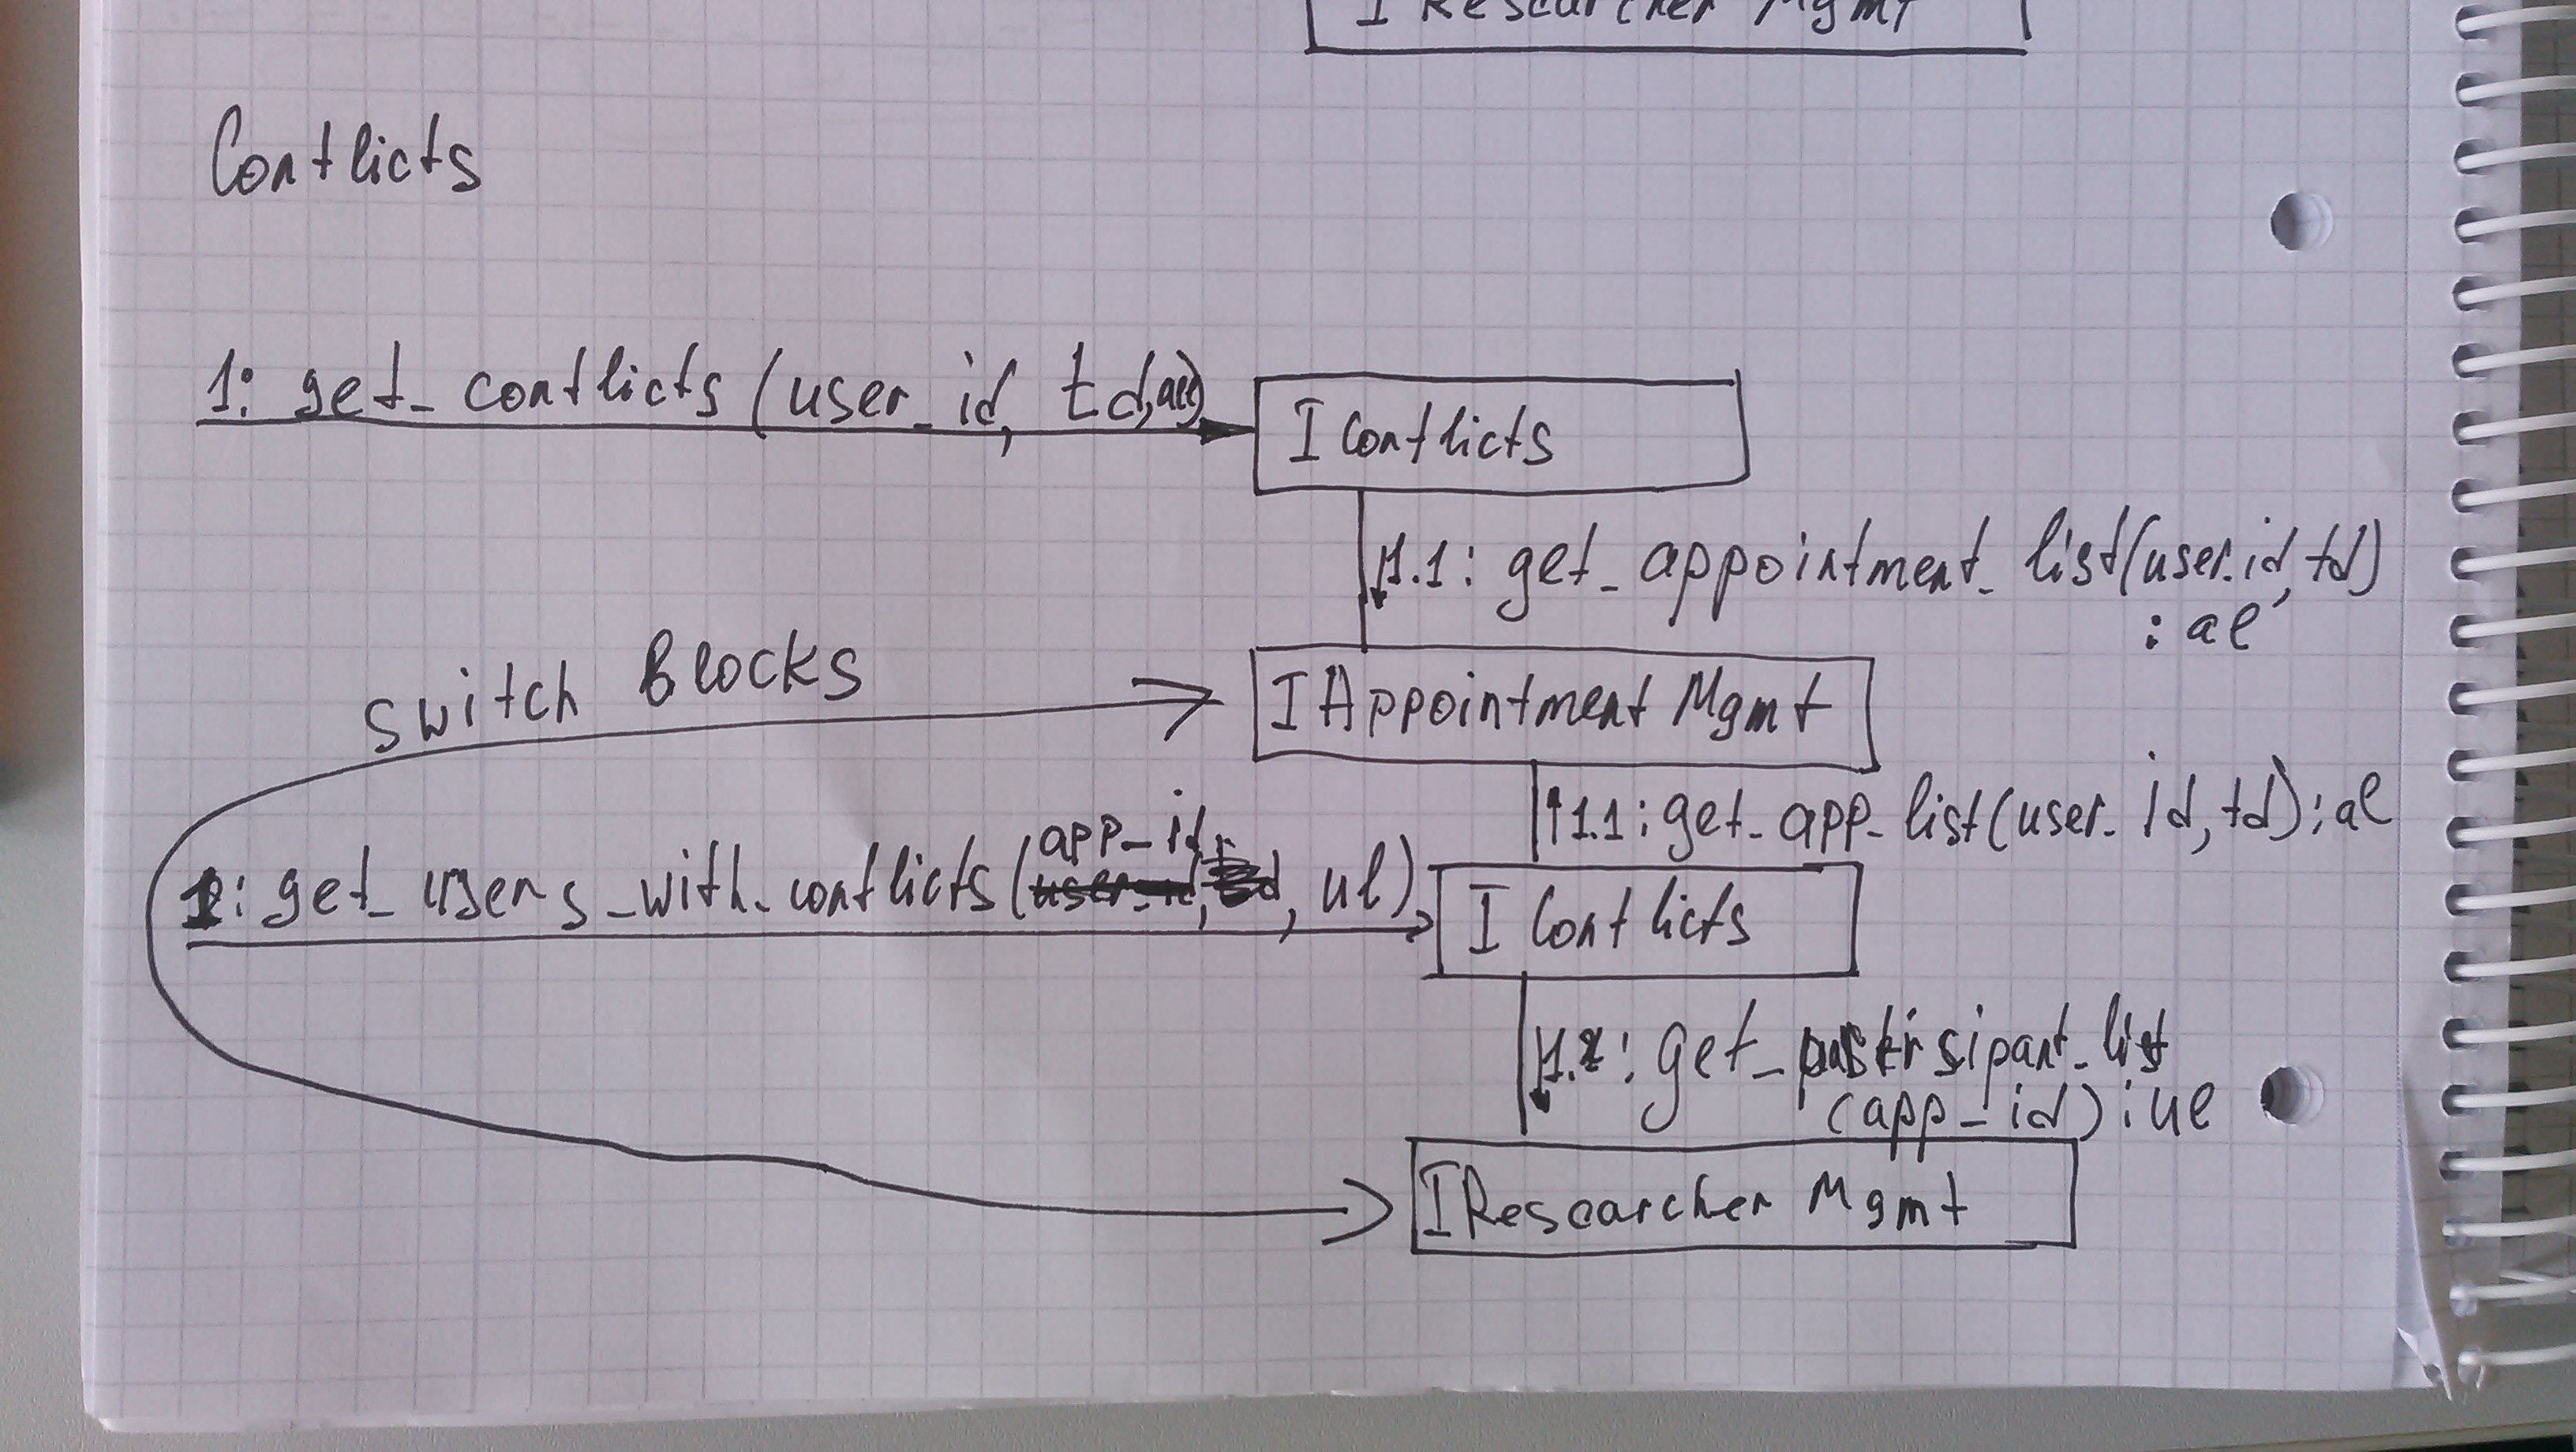 I Researcher Mgmt
Conflicts
1: get_conflicts (user_id, td, ael)
I Conflicts
1.1: get_appointment_list(user_id, td)
: ael
Switch Blocks
I Appointment Mgmt
1.1: get_app_list(user_id, td): ael
app_id
1: get_users_with_conflicts(user_id, , ul)
I Conflicts
1.2: get_partisipant_list
(app_id): ul
IResearcher Mgmt